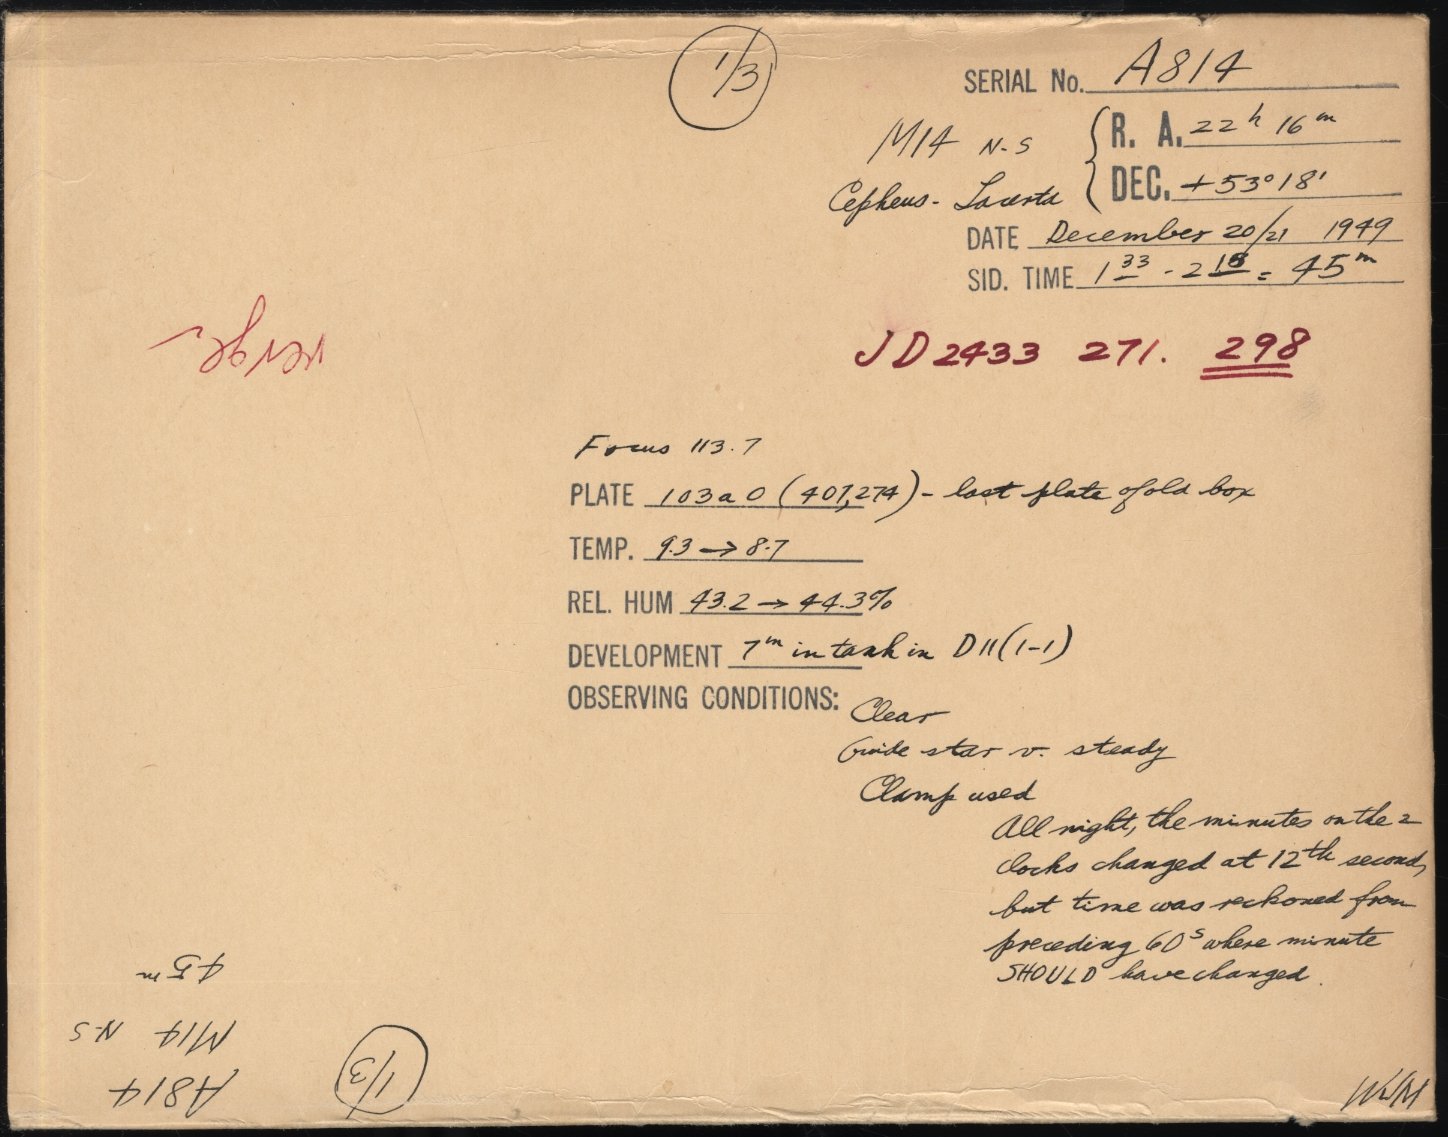 1/3
SERIAL No. A814
M14 N-S { R. A. 22h 16m
Cepheus - Lacerta DEC. +53°18'
DATE December 20/21 1949
SID. TIME 1 33 - 2 18 = 45m
verge
JD 2433 271. 298
Focus 113.7
PLATE 103a O (407,274) - last plate of old box
TEMP. 9.3 → 8.7
REL. HUM 43.2 → 44.3%
DEVELOPMENT 7m in tank in D11 (1-1)
OBSERVING CONDITIONS:
Clear
Guide star v. steady
Clamp used
All night, the minutes on the 2
clocks changed at 12th second,
but time was reckoned from
preceding 60s where minute
SHOULD have changed.
A814
M14 N-S
45m
1/3
WWM